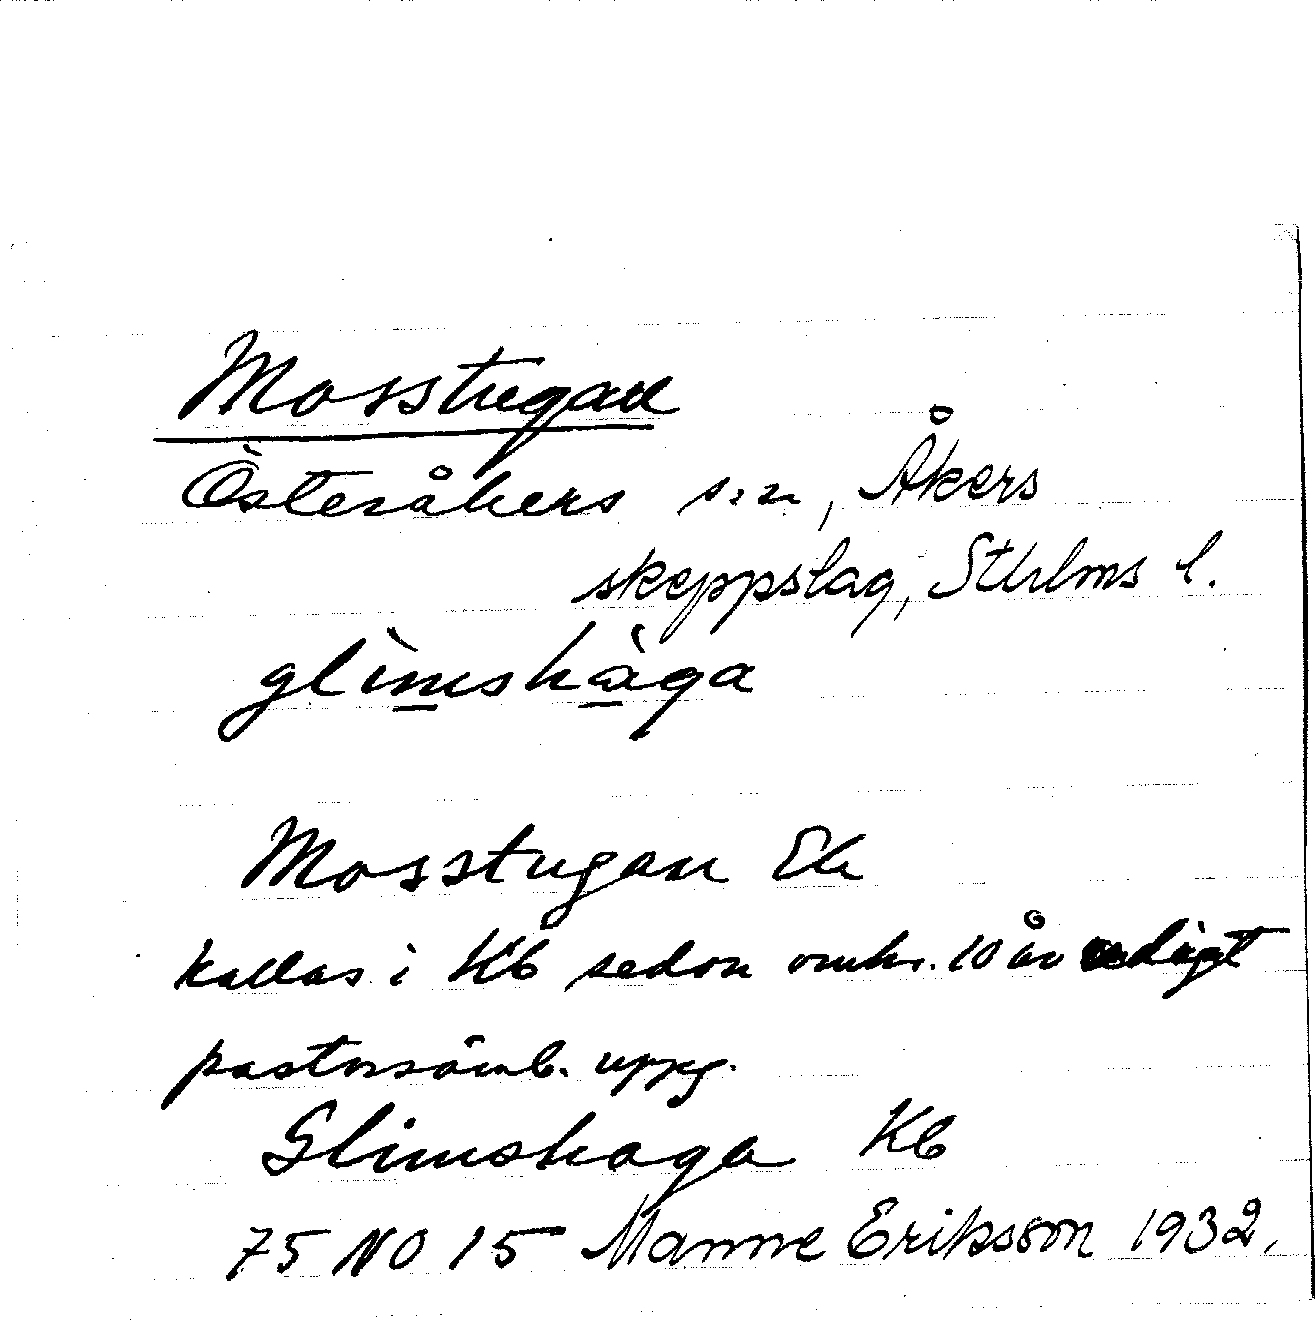 Mosstugan
Österåkers sn, Åkers
skeppslag, Sthlms l.
glìmshàga
Mosstugan Ek
kallas i Kb sedan omkr. 10 år enligt
pastorsämb. uppg.
Glimshaga Kb
75 NO 15 Manne Eriksson 1932.